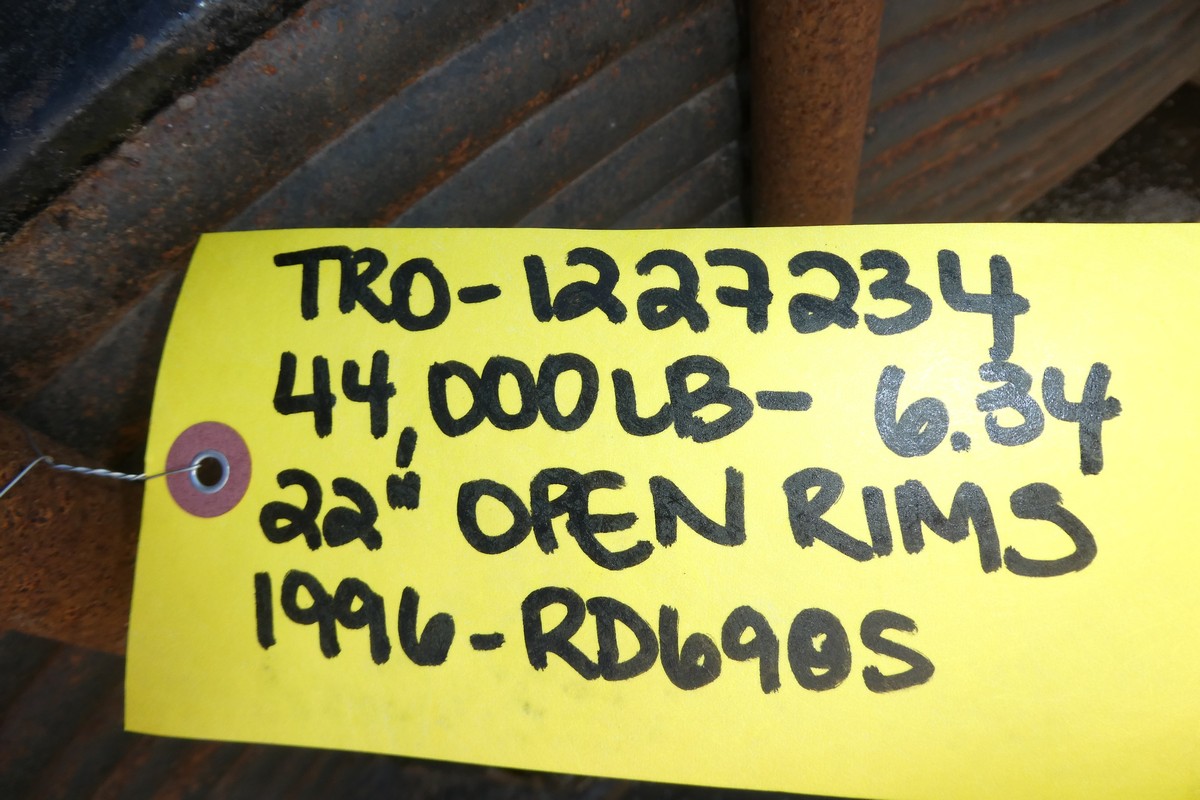 TRO-1227234
44,000LB- 6.34
22" OPEN RIMS
1996-RD690S